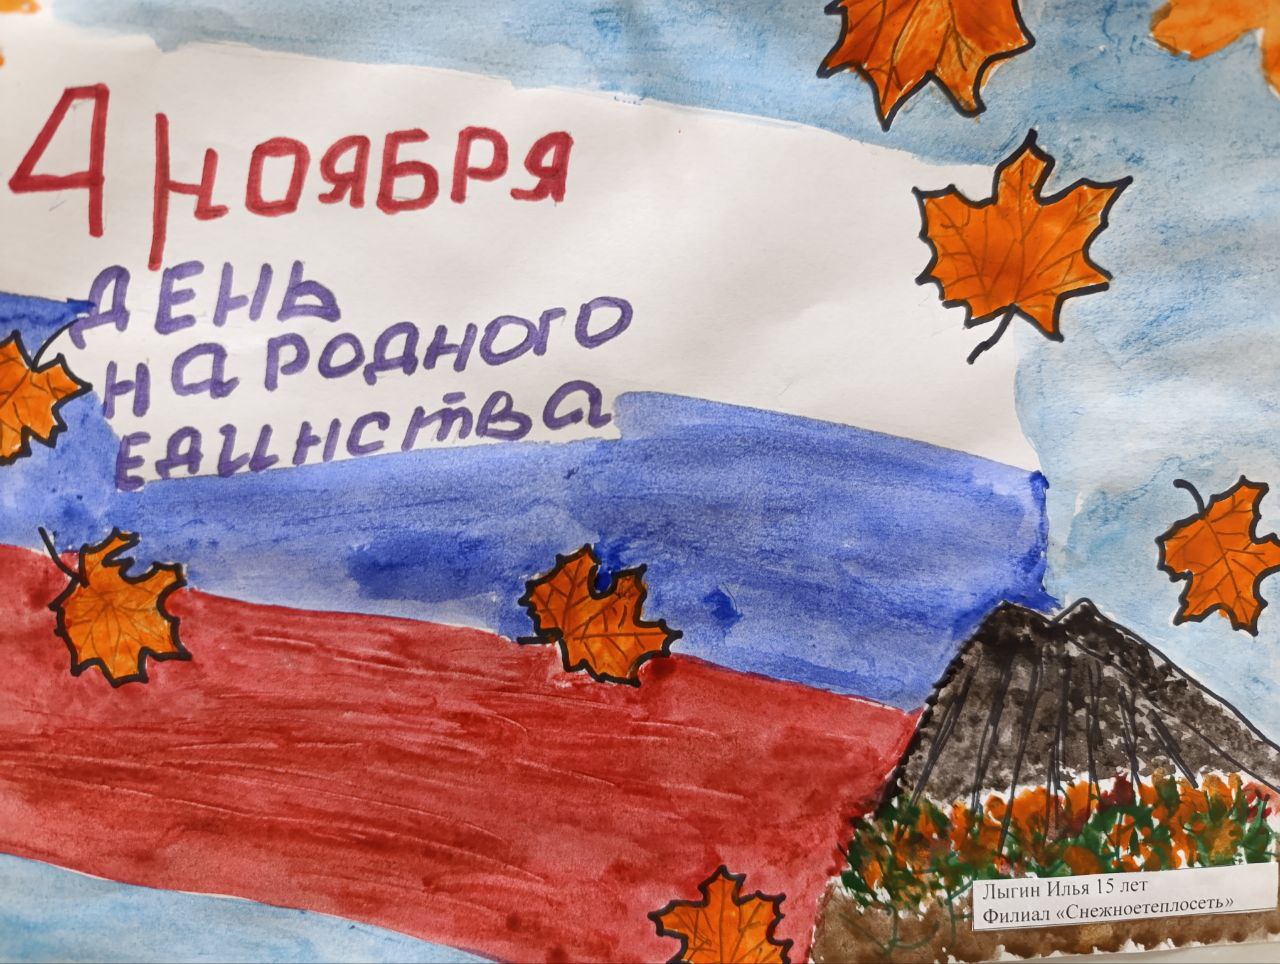 4 НОЯБРЯ
ДЕНЬ
НАРОДНОГО
ЕДИНСТВА
Лыгин Илья 15 лет
Филиал «Снежноетеплосеть»